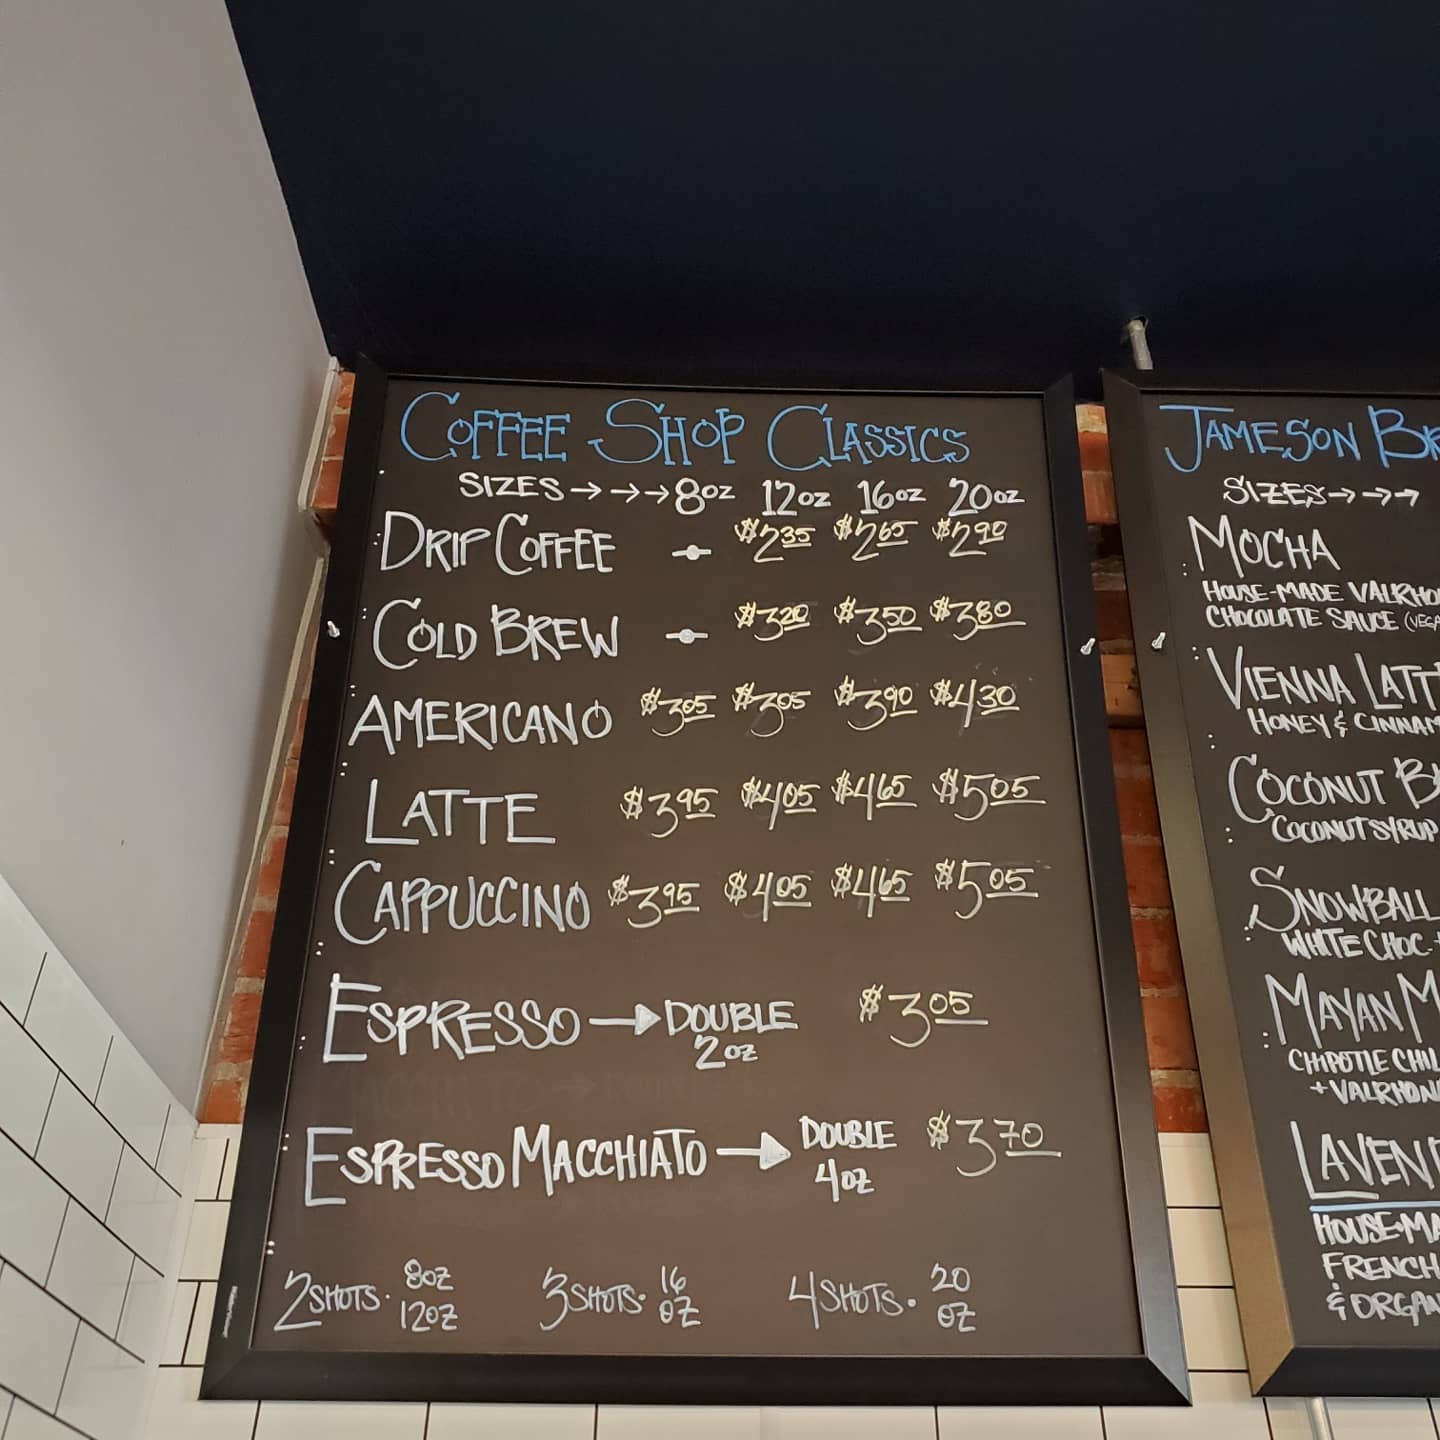 COFFEE SHOP CLASSICS
SIZES→→→8oz 12oz 16oz 20oz
DRIP COFFEE - $2.35 $2.65 $2.90
COLD BREW - $3.20 $3.50 $3.80
AMERICANO $3.05 $3.05 $3.90 $4.30
LATTE $3.95 $4.05 $4.65 $5.05
CAPPUCCINO $3.95 $4.05 $4.65 $5.05
ESPRESSO → DOUBLE $3.05
2oz
ESPRESSO MACCHIATO → DOUBLE $3.70
4oz
2 SHOTS · 8oz
12oz
3 SHOTS · 16
oz
4 SHOTS · 20
oz
JAMESON
SIZES→→→
MOCHA
HOUSE-MADE
CHOCOLATE SAUCE
VIENNA
HONEY &
COCONUT
COCONUT SYRUP
SNOWBALL
WHITE CHOC.
MAYAN
CHIPOTLE
+
HOUSE-
FRENCH
&